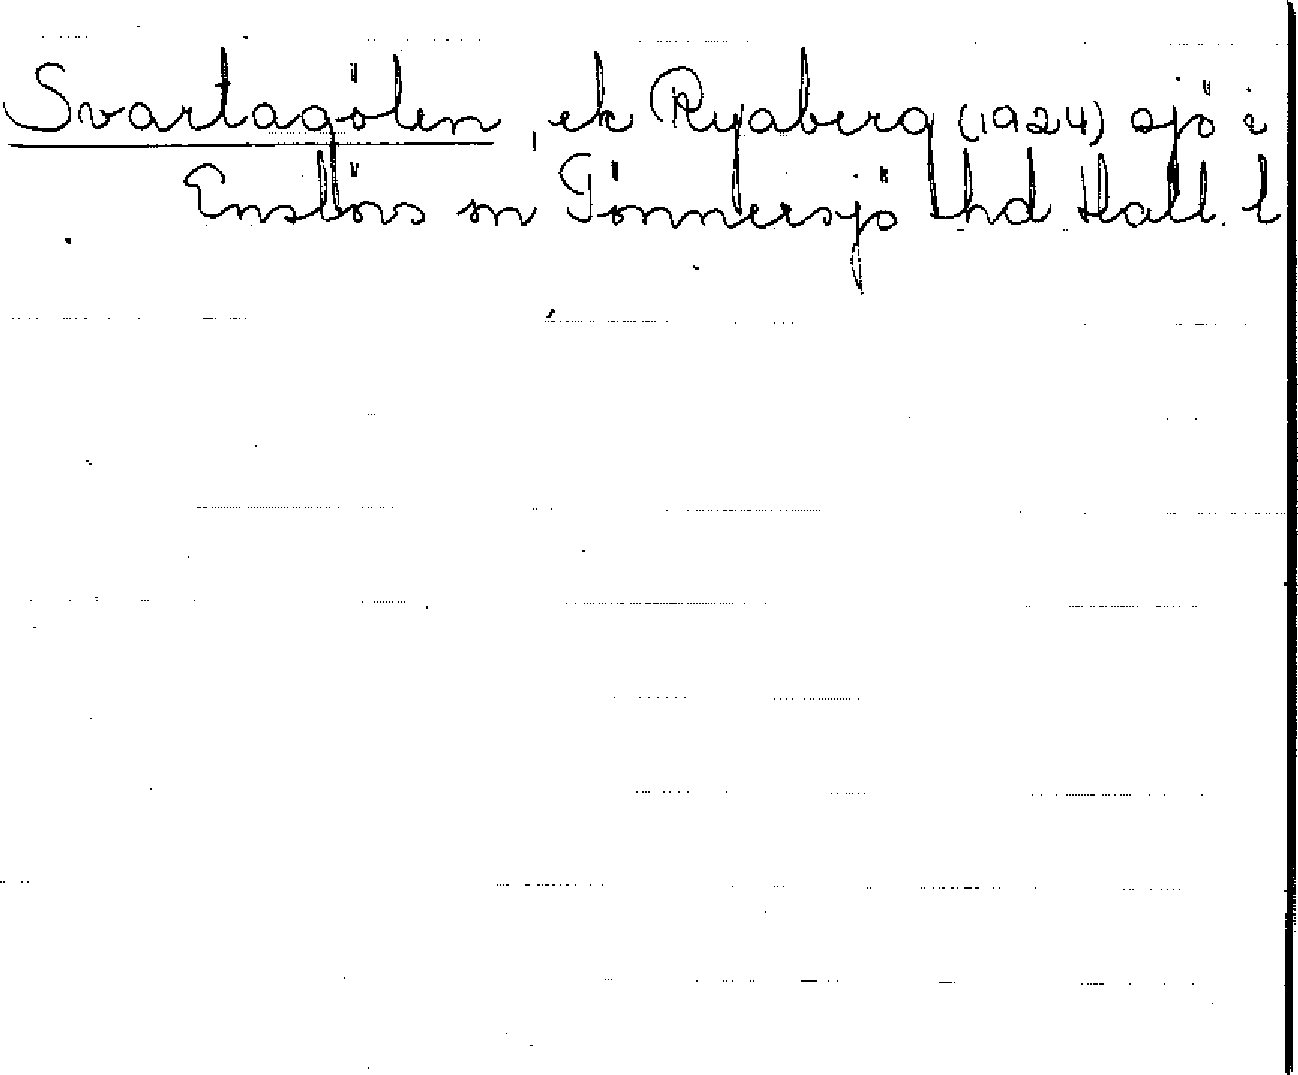 Svartagölen, ek Ryaberg (1924) sjö i
Enslövs sn Tönnersjö hd Hall. l